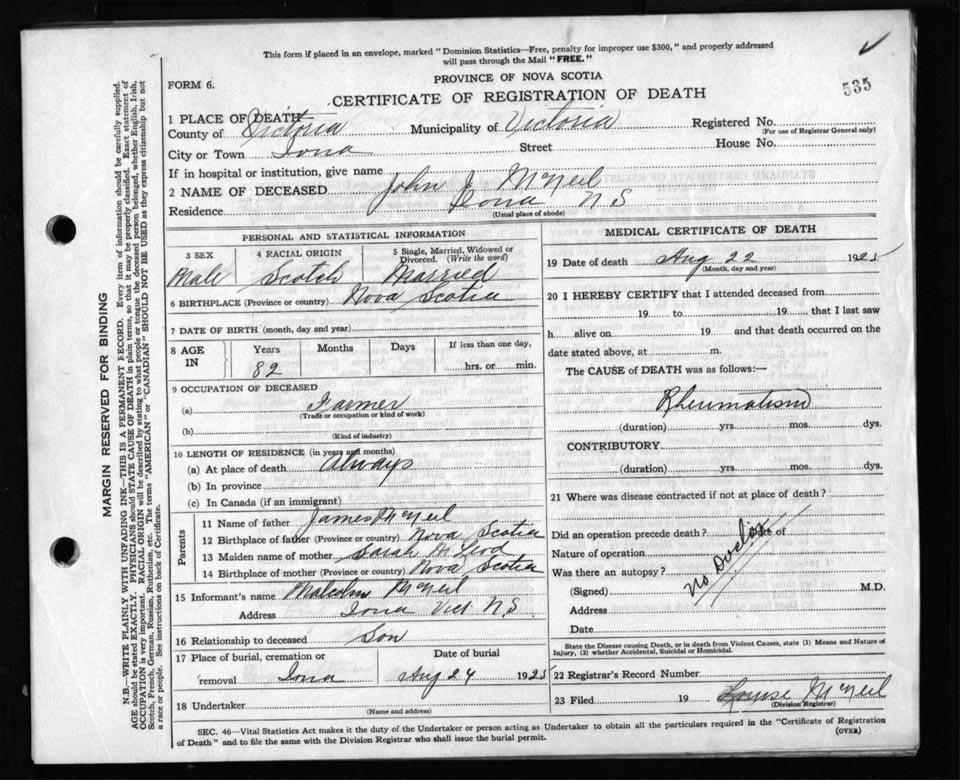 This form if placed in an envelope, marked "Dominion Statistics—Free, penalty for improper use $300," and properly addressed
will pass through the Mail "FREE."
PROVINCE OF NOVA SCOTIA
FORM 6.
535
CERTIFICATE OF REGISTRATION OF DEATH
1 PLACE OF DEATH
County of Victoria Municipality of Victoria Registered No.
(For use of Registrar General only)
City or Town Iona Street House No.
If in hospital or institution, give name
2 NAME OF DECEASED John J McNeil
Residence Iona N S
(Usual place of abode)
PERSONAL AND STATISTICAL INFORMATION
3 SEX 4 RACIAL ORIGIN 5 Single, Married, Widowed or Divorced. (Write the word)
Male Scotch Married
6 BIRTHPLACE (Province or country) Nova Scotia
7 DATE OF BIRTH (month, day and year)
8 AGE IN Years Months Days If less than one day,
82 hrs. or min.
9 OCCUPATION OF DECEASED
(a) Farmer
(Trade or occupation or kind of work)
(b)
(Kind of industry)
10 LENGTH OF RESIDENCE (in years and months)
(a) At place of death Always
(b) In province
(c) In Canada (if an immigrant)
Parents
11 Name of father James McNeil
12 Birthplace of father (Province or country) Nova Scotia
13 Maiden name of mother Sarah McLeod
14 Birthplace of mother (Province or country) Nova Scotia
15 Informant's name Malcolm McNeil
Address Iona Vict N.S.
16 Relationship to deceased Son
17 Place of burial, cremation or removal Iona
Date of burial
Aug 24 1925
18 Undertaker
(Name and address)
MEDICAL CERTIFICATE OF DEATH
19 Date of death Aug 22 1925
(Month, day and year)
20 I HEREBY CERTIFY that I attended deceased from
19 to 19 that I last saw
h alive on 19 and that death occurred on the
date stated above, at m.
The CAUSE of DEATH was as follows:—
Rheumatism
(duration) yrs. mos. dys.
CONTRIBUTORY
(duration) yrs. mos. dys.
21 Where was disease contracted if not at place of death?
Did an operation precede death? Date of
Nature of operation
Was there an autopsy?
No Doctor
(Signed) M.D.
Address
Date
State the Disease causing Death, or in death from Violent Causes, state (1) Means and Nature of
Injury, (2) whether Accidental, Suicidal or Homicidal.
22 Registrar's Record Number
23 Filed 19 Louise McNeil
(Division Registrar)
SEC. 46—Vital Statistics Act makes it the duty of the Undertaker or person acting as Undertaker to obtain all the particulars required in the "Certificate of Registration
of Death" and to file the same with the Division Registrar who shall issue the burial permit. (OVER)
MARGIN RESERVED FOR BINDING
N.B.—WRITE PLAINLY WITH UNFADING INK—THIS IS A PERMANENT RECORD. Every item of information should be carefully supplied.
AGE should be stated EXACTLY. PHYSICIANS should STATE CAUSE OF DEATH in plain terms, so that it may be properly classified. Exact statement of
OCCUPATION is very important. RACIAL ORIGIN will be described by stating to what people or tongue the deceased person belonged, whether English, Irish,
Scotch, French, German, Russian, Ruthenian, etc. The terms "AMERICAN" or "CANADIAN" SHOULD NOT BE USED as they express citizenship but not
a race or people. See instructions on back of Certificate.